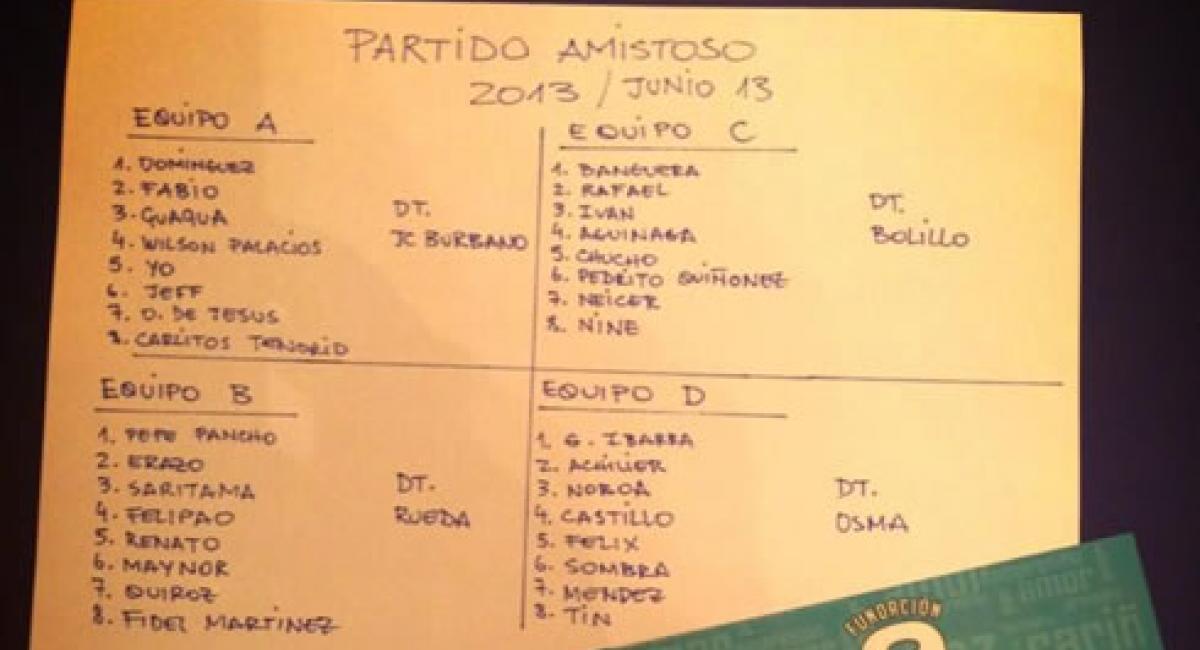 PARTIDO AMISTOSO
2013 / JUNIO 13
EQUIPO A
1. DOMINGUEZ
2. FABIO
3. GUAGUA
4. WILSON PALACIOS
5. YO
6. JEFF
7. D. DE JESUS
8. CARLITOS TENORIO
DT.
JC BURBANO
EQUIPO C
1. BANGUERA
2. RAFAEL
3. IVAN
4. AGUINAGA
5. CHUCHO
6. PEDRITO QUIÑONEZ
7. NEICER
8. NINE
DT.
BOLILLO
EQUIPO B
1. PEPE PANCHO
2. ERAZO
3. SARITAMA
4. FELIPAO
5. RENATO
6. MAYNOR
7. QUIROZ
8. FIDEL MARTINEZ
DT.
RUEDA
EQUIPO D
1. G. IBARRA
2. ACHILIER
3. NOBOA
4. CASTILLO
5. FELIX
6. SOMBRA
7. MENDEZ
8. TIN
DT.
OSMA
FUNDACIÓN